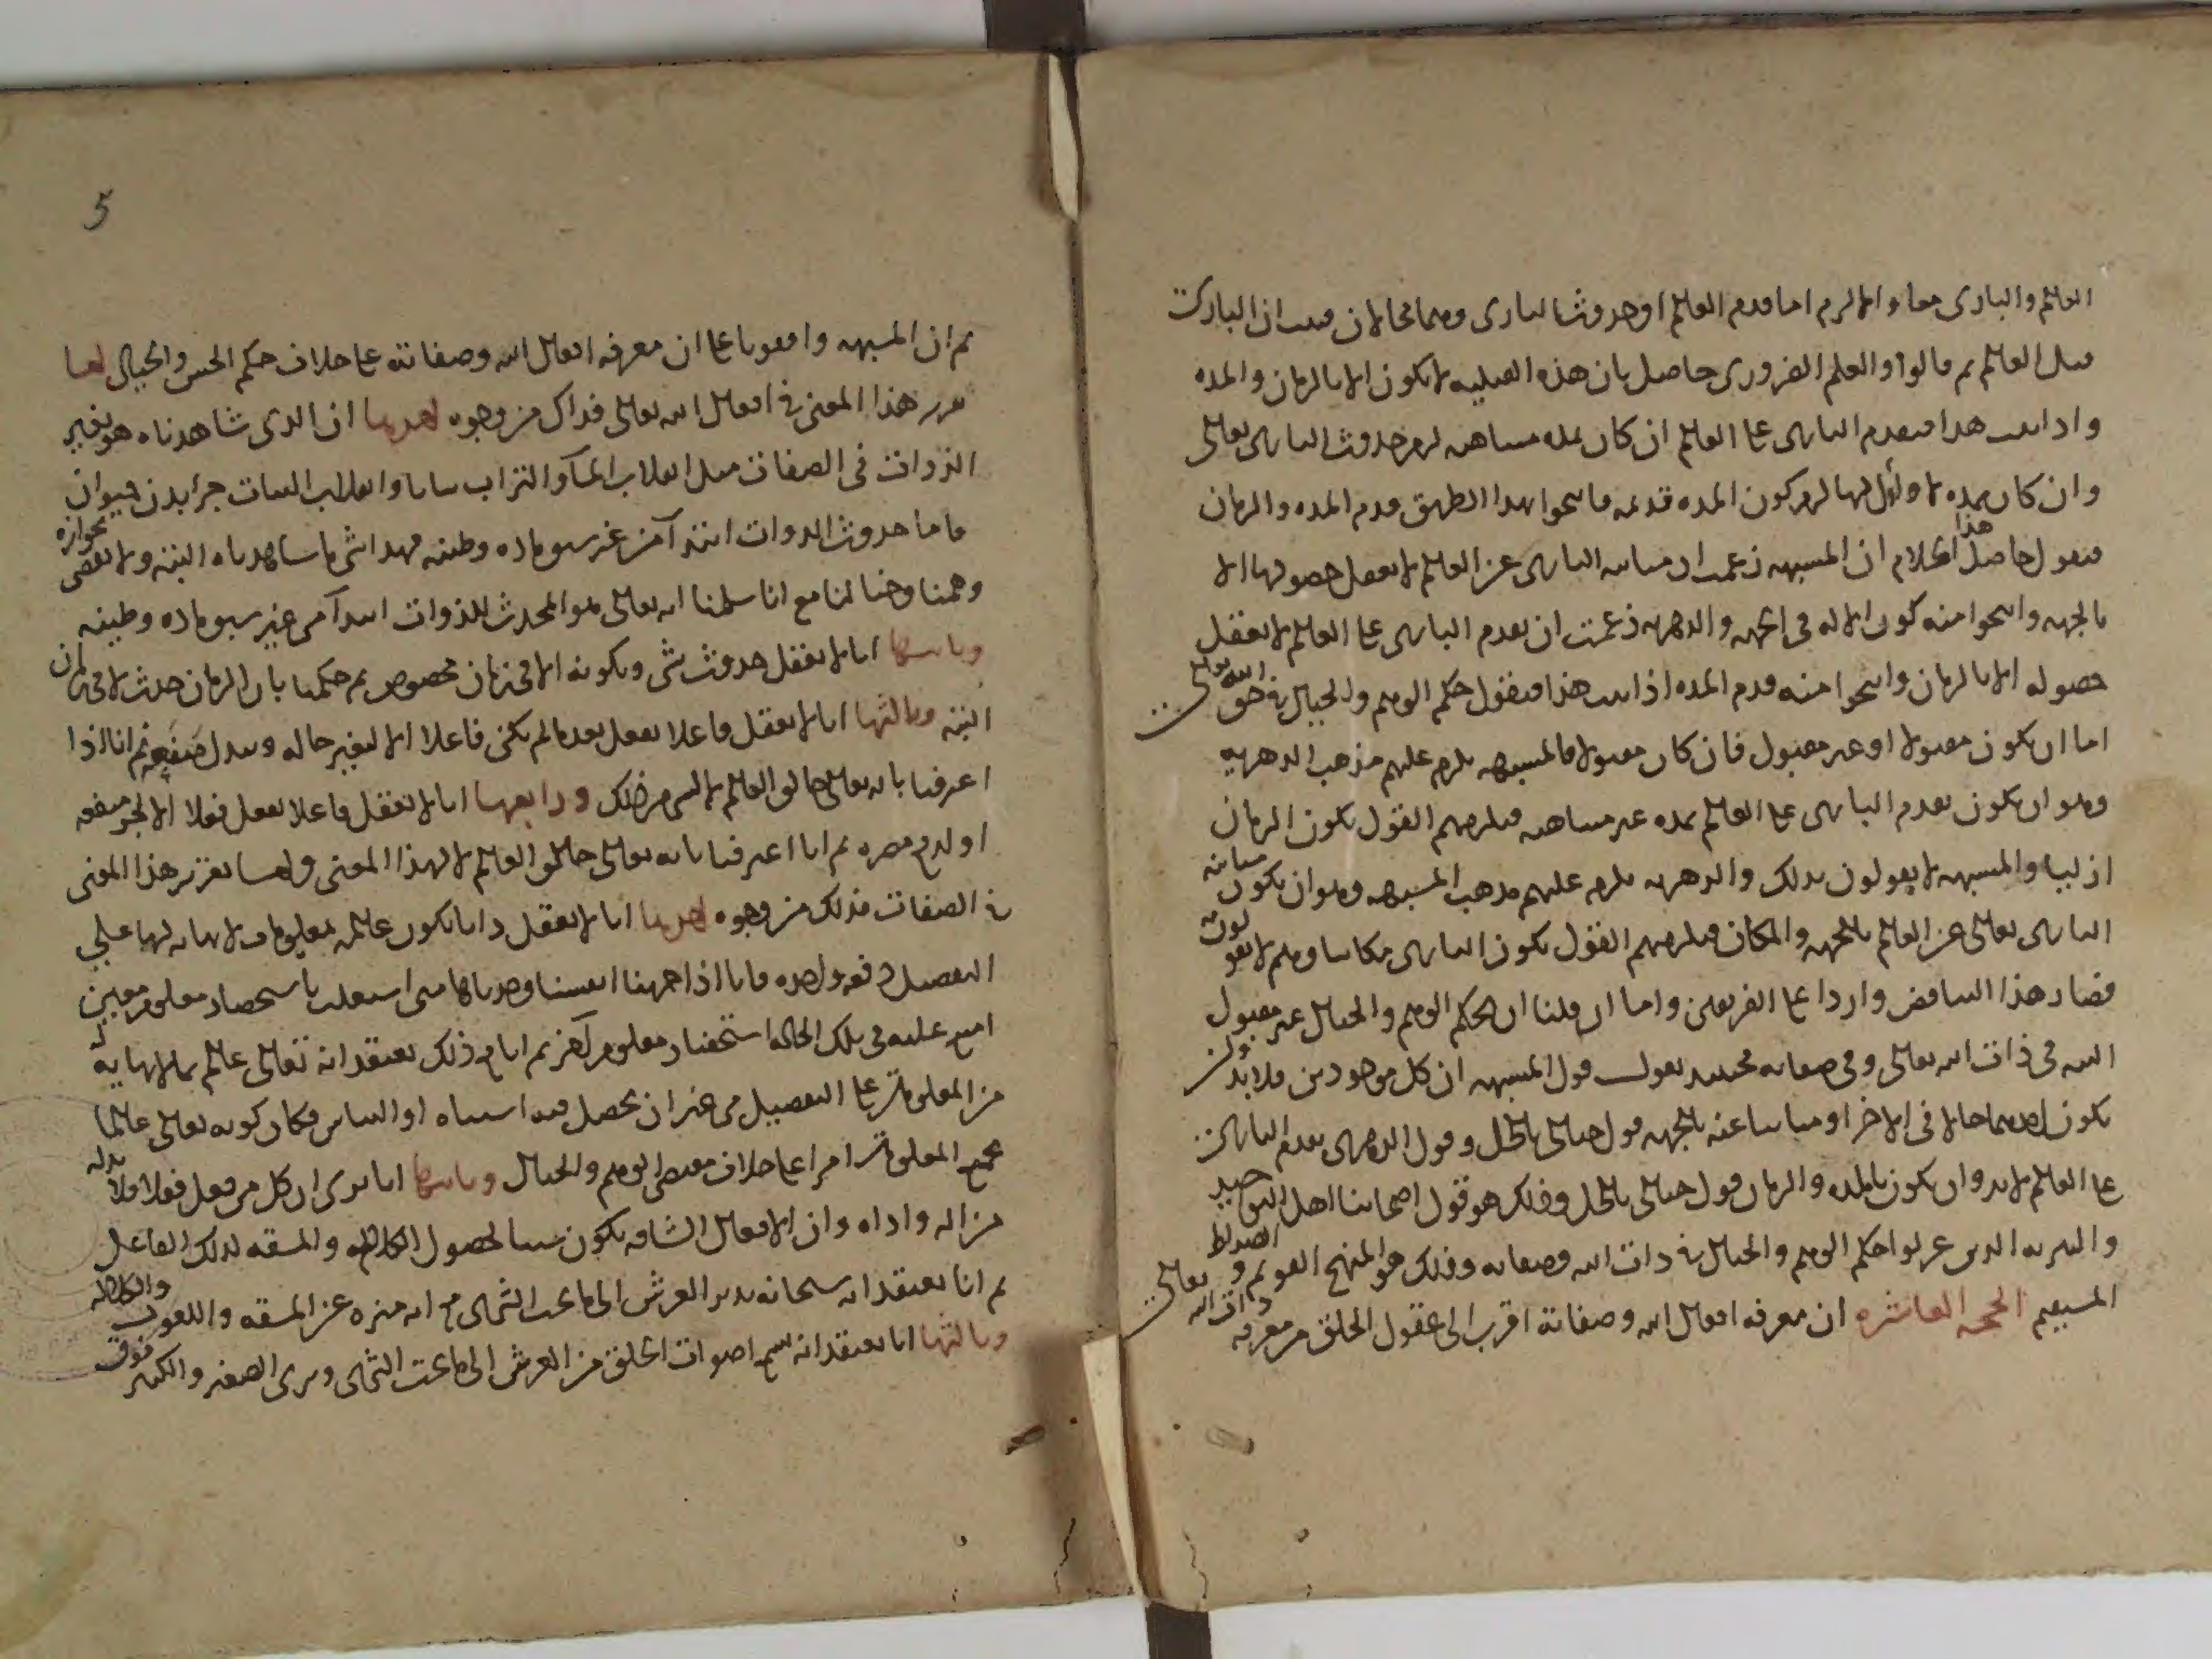 العالم والبارى معا والا لزم اما قدم العالم او حدوث البارى وهما محالان فثبت ان البارى
قبل العالم ثم قالوا والعلم الضرورى حاصل بان هذه القبلية لا تكون الا بالزمان والمدة
واذا ثبت هذا فتقدم البارى على العالم ان كان بمدة متناهية لزم حدوث البارى تعالى
وان كان بمدة لا اول لها لزم كون المدة قديمة فانتجوا بهذا الطريق قدم المدة والزمان
فنقول حاصل هذا الكلام ان المشبهة زعمت ان مباينة البارى عن العالم لا يعقل حصولها الا
بالجهة وانتجوا منه كون الاله فى الجهة والدهرية زعمت ان تقدم البارى على العالم لا يعقل
حصوله الا بالزمان وانتجوا منه قدم المدة اذا ثبت هذا فنقول حكم الوهم والخيال فى حق الله تعالى
اما ان يكون مقبولا او غير مقبول فان كان مقبولا فالمشبهة يلزم عليهم مذهب الدهرية
وهو ان يكون تقدم البارى على العالم بمدة غير متناهية فيلزمهم القول بكون الزمان
ازليا والمشبهة لا يقولون بذلك والدهرية يلزم عليهم مذهب المشبهة وهو ان يكون مباينة
البارى تعالى عن العالم بالجهة والمكان فيلزمهم القول بكون البارى مكانيا وهم لا يقولون به
فصار هذا التناقض واردا على الفريقين واما ان قلنا ان حكم الوهم والخيال غير مقبول
البتة فى ذات الله تعالى وفى صفاته فحينئذ نقول قول المشبهة ان كل موجودين فلا بد وان
يكون احدهما حالا فى الاخر او مباينا عنه بالجهة قول خيالى باطل وقول الدهرى بتقدم البارى
على العالم لا بد وان يكون بالمدة والزمان قول خيالى باطل وذلك هو قول اصحابنا اهل التوحيد
والتنزيه الذين عزلوا حكم الوهم والخيال فى ذات الله وصفاته وذلك هو المنهج القويم والصراط
المستقيم الحجة العاشرة ان معرفة افعال الله وصفاته اقرب الى عقول الخلق من معرفة ذات الله تعالى
5
ثم ان المشبهة وافقونا على ان معرفة افعال الله وصفاته على خلاف حكم الحس والخيال اما
تقرير هذا المعنى فى افعال الله تعالى فذاك من وجوه احدها ان الذى شاهدناه هو تغير
الذوات فى الصفات مثل انقلاب الماء والتراب نباتا وانقلاب النبات جزء بدن حيوان
فاما حدوث الذوات ابتداء من غير سبق مادة وطينة فهذا شى ما شاهدناه البتة ولا يقضى بجوازه
وهمنا وخيالنا مع انا سلمنا انه تعالى هو المحدث للذوات ابتداء من غير سبق مادة وطينة
وثانيها انا لا نعقل حدوث شى وتكونه الا فى زمان مخصوص ثم حكمنا بان الزمان حدث لا فى زمان
البتة وثالثها انا لا نعقل فاعلا يفعل بعد ما لم يكن فاعلا الا لتغير حاله وتبدل صفة ثم انا اذا
اعترفنا بانه تعالى خالق العالم من ذلك ورابعها انا لا نعقل فاعلا يفعل فعلا الا لجر منفعة
او لدفع مضرة ثم انا اعترفنا بانه تعالى خالق العالم لا لهذا المعنى واما تقرير هذا المعنى
فى الصفات فذلك من وجوه احدها انا لا نعقل ذاتا يكون عالمة بمعلومات لا نهاية لها على
التفصيل دفعة واحدة فانا اذا جربنا انفسنا وجدناها متى اشتغلت باستحضار معلوم معين
امتنع عليه فى تلك الحالة استحضار معلوم آخر ثم انا مع ذلك نعتقد انه تعالى عالم بما لا نهاية له
من المعلومات على التفصيل من غير ان يحصل فيه اشتباه او التباس فكان كونه تعالى عالما
بجميع المعلومات امرا على خلاف مقتضى الوهم والخيال وثانيها انا نرى ان كل من فعل فعلا فلا بد له
من الة واداة وان الافعال الشاقة يكون سببا لحصول الكلالة والمشقة لذلك الفاعل
ثم انا نعتقد انه سبحانه يدبر العرش الى ما تحت الثرى مع انه منزه عن المشقة واللغوب والكلالة
وثالثها انا نعتقد انه يسمع اصوات الخلق من العرش الى ما تحت الثرى ويرى الصغير والكبير فوق